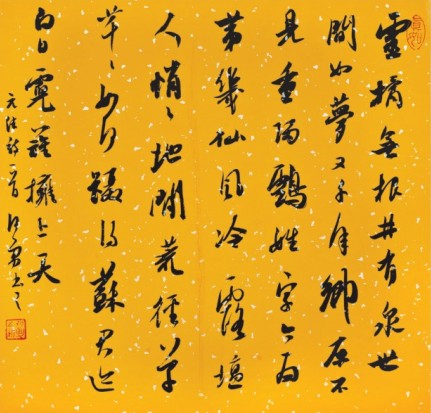 靈橘無根井有泉世
間如夢又千年鄉原不
見重歸鶴姓字今為
第幾仙風冷露壇
人悄〻地閒荒徑草
芊〻如何躡得蘇君迹
白日霓旌擁上天
元結詩一首書之